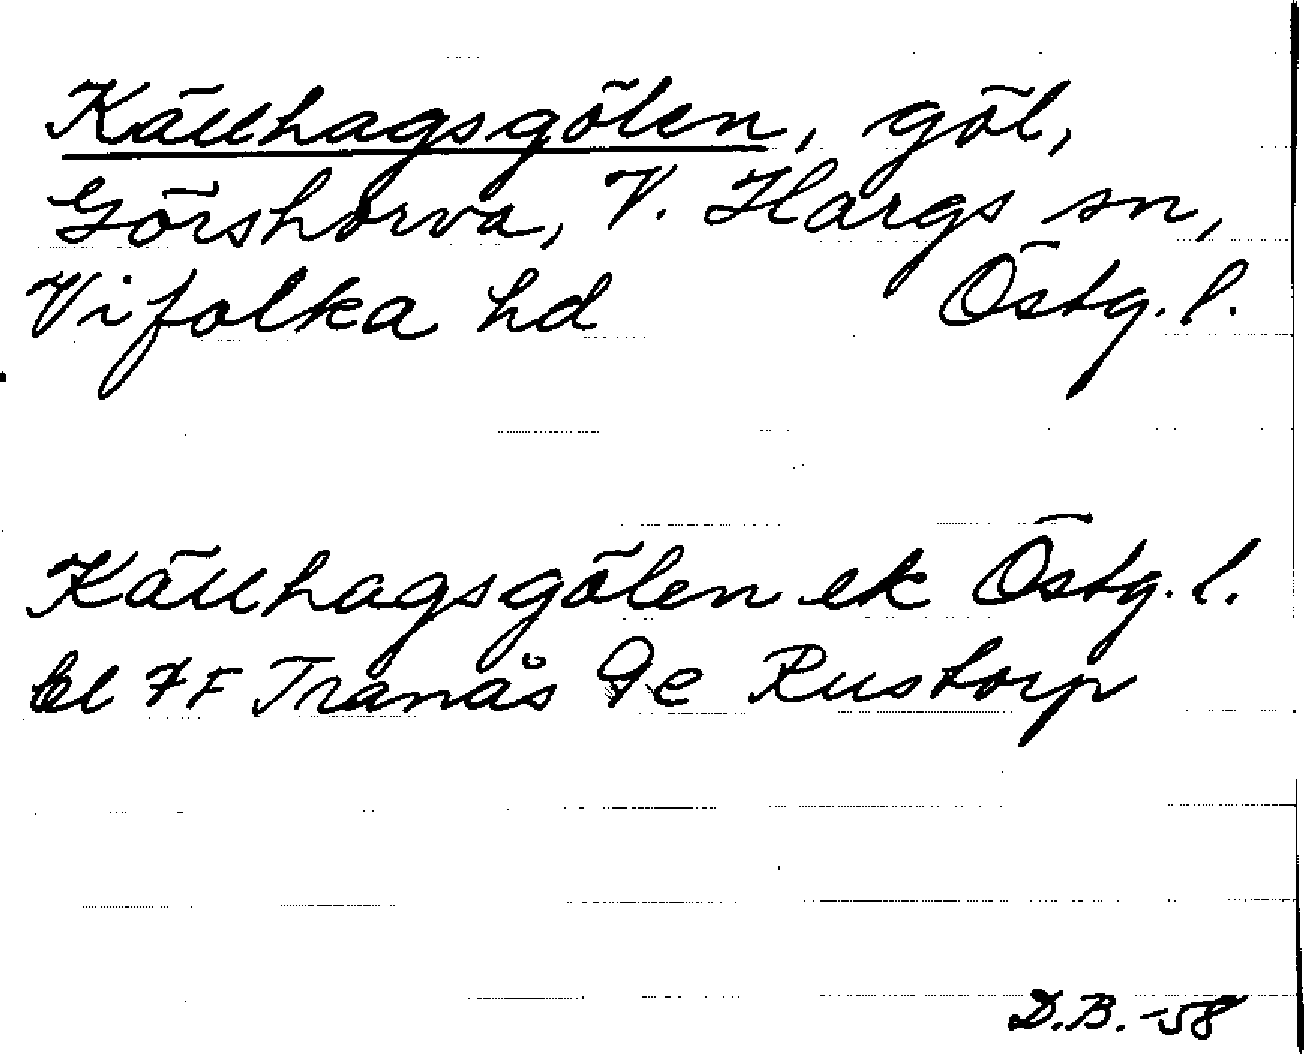 Källhagsgölen, göl,
Görshorva, V. Hargs sn,
Vifolka hd Östg. l.
Källhagsgölen ek Östg. l.
bl 7F Tranås 9e Rustorp
D.B. -58